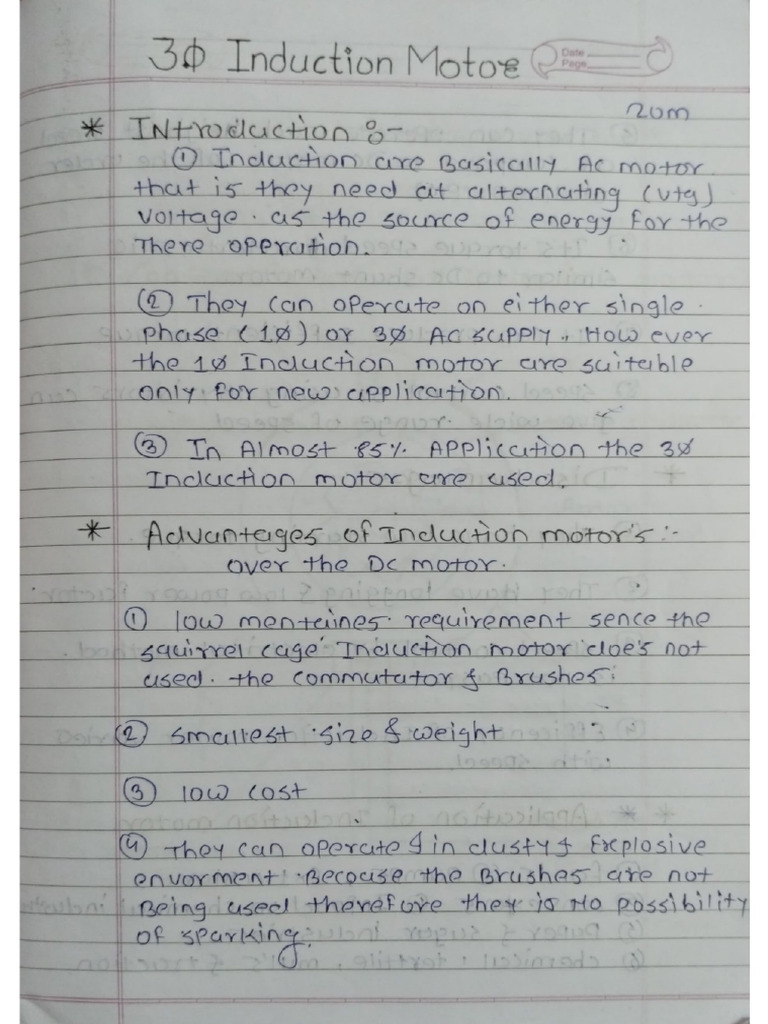 3Φ Induction Motor
Date
Page
20m
* Introduction :-
① Induction are Basically Ac motor
that is they need at alternating (vtg)
voltage. as the source of energy for the
There operation.
② They can operate on either single
phase (1Φ) or 3Φ Ac supply. How ever
the 1Φ Induction motor are suitable
only for new application.
③ In Almost 85% Application the 3Φ
Induction motor are used.
* Advantages of Induction motor's :-
over the Dc motor.
① low mentaines requirement sence the
squirrel cage Induction motor doe's not
used. the commutator & Brushes.
② smallest size & weight
③ low cost
④ They can operate & in dusty & Explosive
envorment Because the Brushes are not
Being used therefore they is No possibility
of sparking.